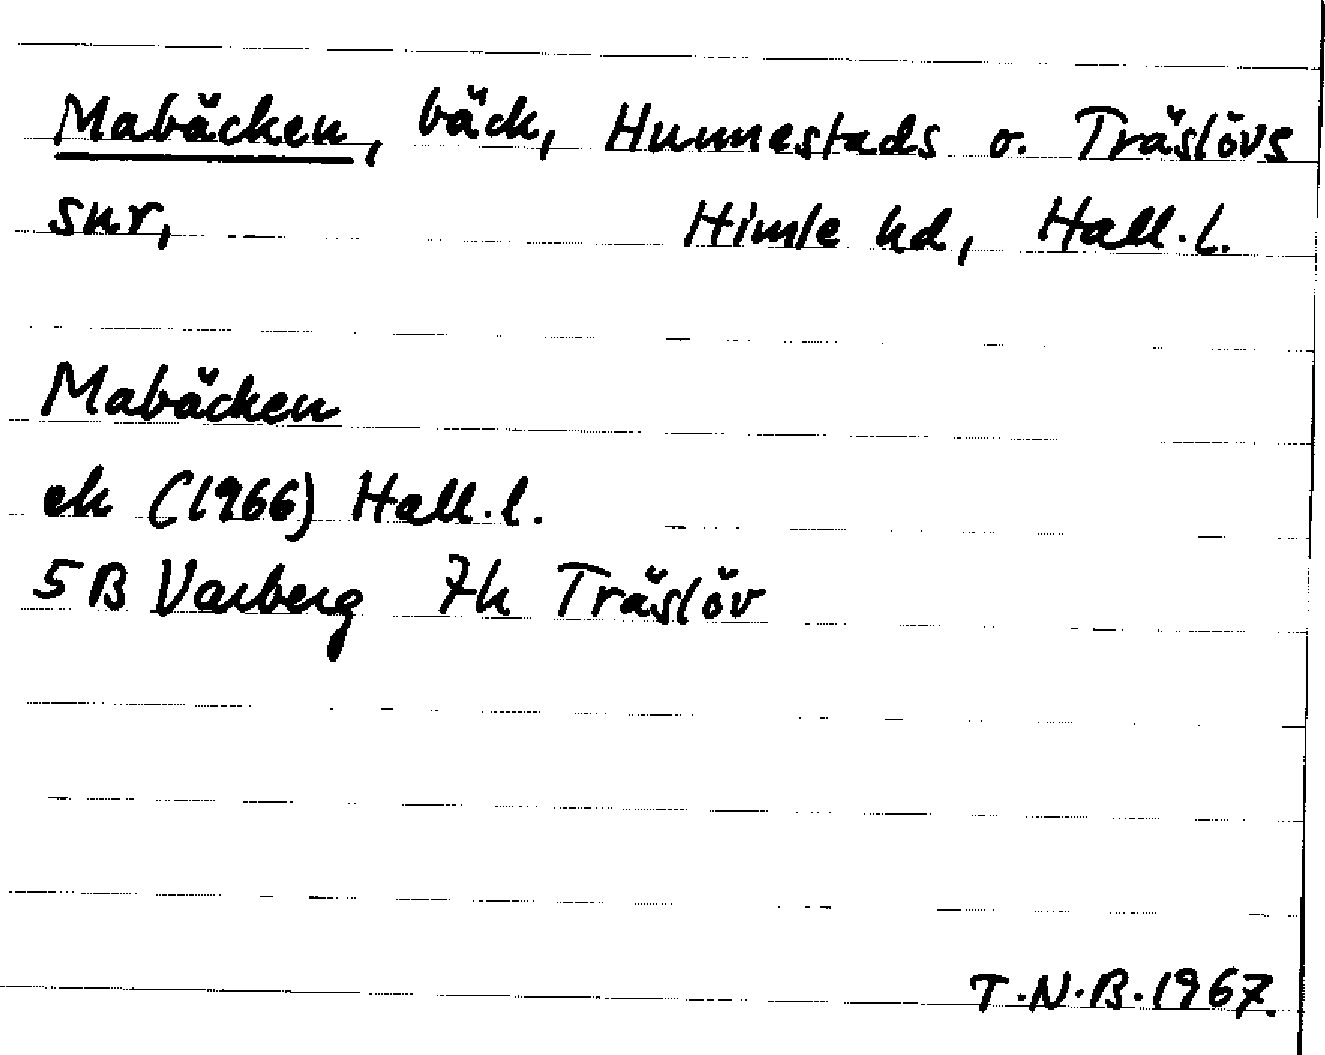 Mabäcken, bäck, Hunnestads o. Träslövs
snr, Himle hd, Hall.l.
Mabäcken
ek (1966) Hall.l.
5B Varberg 7h Träslöv
T.N.B.1967.